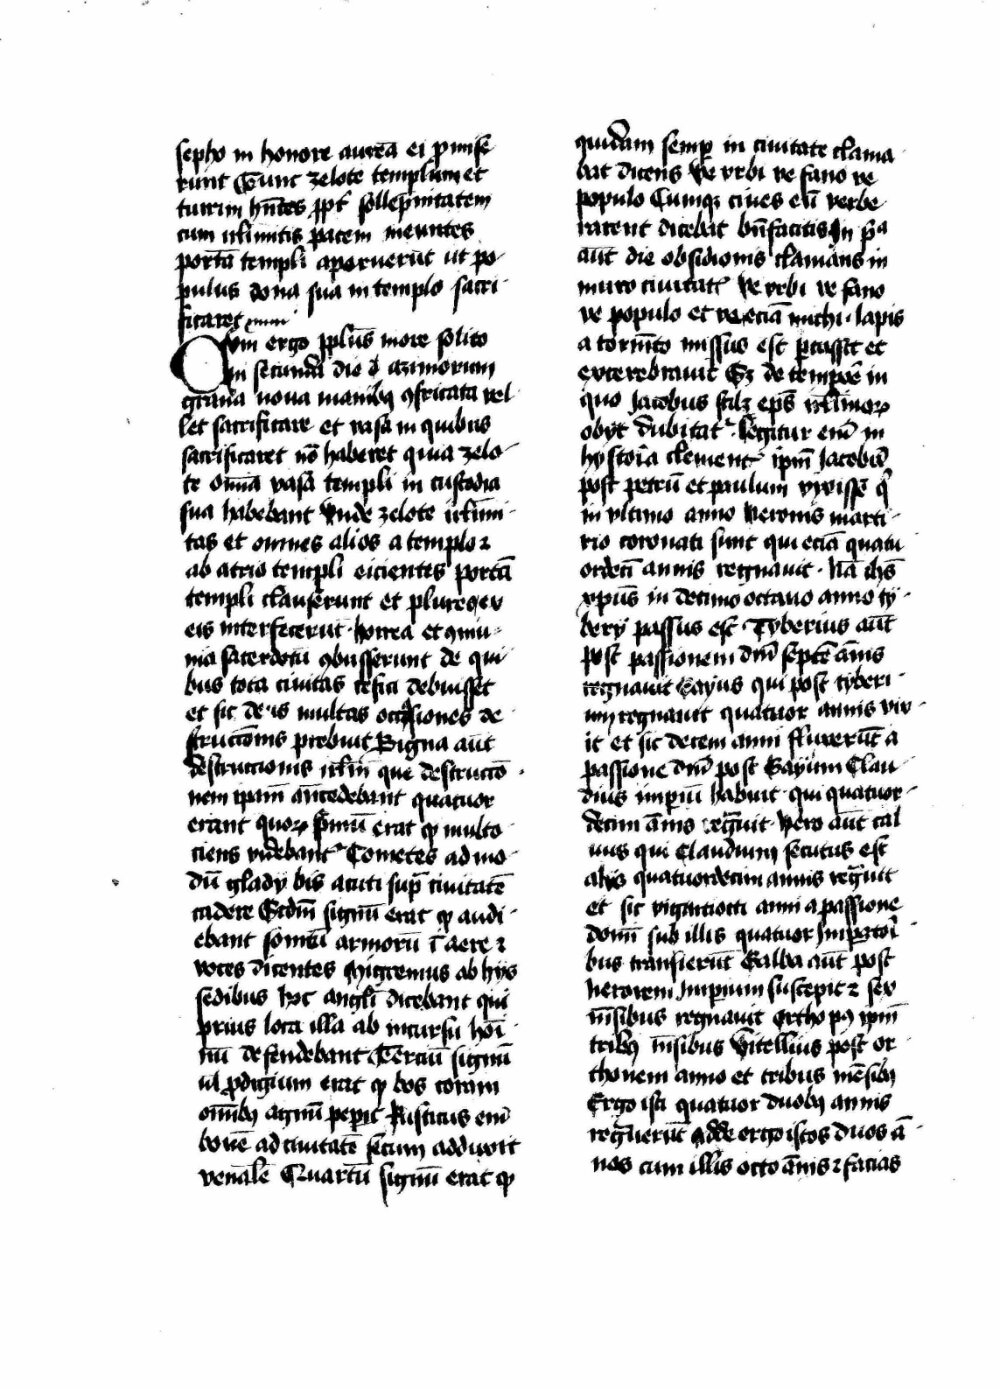 sepho in honore aurea ei p̄mise
runt Tunc zelote templum et
turrim hn̄tes ppt̄ sollepnitatem
cum irlimitis pacem meuntes
portā templi aperuerūt ut po-
pulus dona sua in templo sacri-
ficaret
Cum ergo ppl̄us more solito
in secunda die d̄ azimorum
grana noua manibꝫ ꝯfricata vel-
let sacrificare et vasa in quibus
sacrificaret nō haberet quia zelo-
te om̄ia vasa templi in custodia
sua habebant Vnde zelote irlimi-
tas et omnes alios a templo ⁊
ab atrio templi eicientes portā
templi clauserunt et plures ex
eis interfecerūt. horrea et ꝯmu-
nia sacerdotū ꝯbusserunt de qui-
bus tota ciuitas refici debuisset
et sic de is multas occasiones de
structionis prebuit Signa aūt
destructionis irlm̄ que destructo-
nem ip̄am antecedebant quatuor
erant quoꝝ P̄mū erat ꝙ multo
ciens videbant Cometes ad mo-
dū gladÿ bis acuti sup̄ ciuitatē
cadere Scdm̄ signū erat ꝙ audi-
ebant sonitū armorū ī aere ⁊
voces dicentes Migremus ab hÿs
sedibus hoc angli dicebant qui
prius loca illa ab incursu hoī-
nū defendebant Terciū signū
ul̄ ꝓdigium erat ꝙ bos coram
om̄ibꝫ agnū peperit Rusticus em̄
bouē ad ciuitatē secum adduxit
venālē Quartū signū erat ꝙ
quidam semp̄ in ciuitate clama-
bat dicens Ve vrbi ve fano ve
populo Cumqꝫ ciues eū verbe
rarent dicebat bn̄facitis In pª
aūt die obsidionis clamans in
muro ciuitatꝭ Ve vrbi ve fano
ve populo et ve eciā michi. lapis
a tormēto missus est p̄cussit et
excerebrauit Sꝫ de tempē in
quo Jacobus scilꝫ ep̄s irlimoꝝ
obÿt dubitatꝛ. legitur em̄ in
hystoria clementꝭ ip̄m Jacobū
post petrū et paulum vixisse q̄
in vltimo anno Neronis marti-
rio coronati sunt qui eciā quatu-
ordeci annis regnauit. Nā ihs̄
xpūs in decimo octauo anno ty-
berÿ passus est. Tyberius aūt
post passionem dm̄ septē ānis
regnauit Gayus qui post tyberi-
um regnauit quatuor annis vix-
it et sic decem anni fluxerūt a
passione dm̄ post Gayum Clau-
dius impiū habuit qui quatuor-
decim ānis reg̅uit. Nero aūt cal
uus qui Claudium secutus est
alÿs quatuordecim annis reg̅uit
et sic vigintiocti anni a passione
domī sub illis quatuor Imp̄atori-
bus transierūt Galba aūt post
neronem Imperium suscepit ⁊ sex
m̄sibus regnauit Ortho pꝰ ip̄m
tribꝫ m̄sibus Vitellius post or-
thonem anno et tribus mēsibꝫ
Ergo isti quatuor duobꝫ annis
reg̅uerūt adde ergo istos duos ā-
nos cum illis octo ānis ⁊ facias